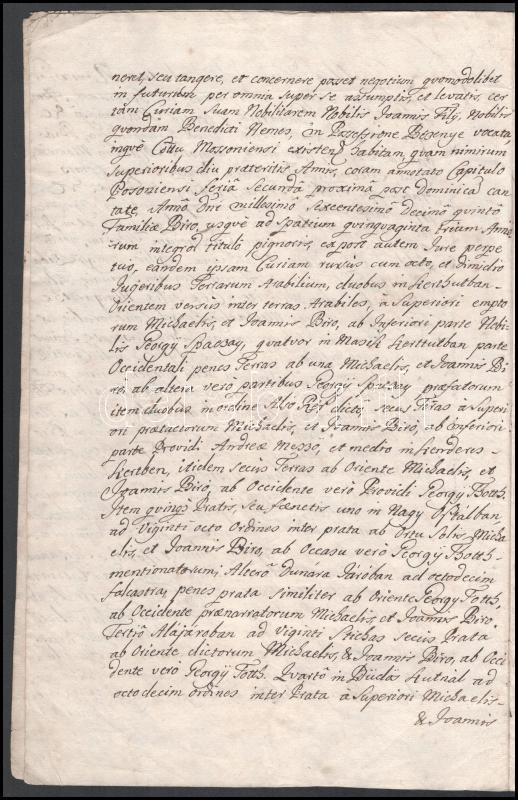 neret, seu tangere, et concernere posset negotium quomodolibet
in futurum per omnia super se assumptis, et levatis, cer
tam Curiam suam Nobilitarem Nobilis Joannis Fily, Nobilis
quondam Benedicti Nemes, in Possessione Bezenye vocata,
inqve Cottu Mossoniensi existen habitam, quam nimirum
Superioribus diu præteritis Annis, coram annotato Capitulo
Posoniensi feria Secunda proxima post Dominicam Can
tate, Anno Dni millesimo Sixcentesimo Decimo quinto
Familiæ Biro, usqve ad spatium quinquaginta trium Anno
rum integror titulo pignoris, ex post autem Jure perpe
tuo, eandem ipsam Curiam rursus cum octo, et dimidio
Jugeribus Terrarum Arabilium, duobus in Kerthutban
Orientem versus inter terras Arabiles, à Superiori empto
rum Michaelis, et Joannis Biro, ab Inferiori parte Nobi
lis Georgy Spazay, quatvor in Masik Kerttutban parte
Occidentali penes Terras ab una Michaelis, et Joannis Bi
ro, ab altera vero partibus Georgÿ Spazay præfatorum
item duobus in ordine Also Rét dicto, secus Terras à Superi
ori præfactorum Michaelis, et Joannis Biro, ab inferiori
parte Providi Andreæ Messo, et medio in Kenderes-
Kertben, itidem secus Terras ab Oriente Michaelis, et
Joannis Biro, ab Occidente verò Providi Georgÿ Totth.
Item quinqs Pratis, seu fœnetis uno in Nagy Osztalban,
ad Viginti octo Ordines inter prata ab Ortu Solis Micha
elis, et Joannis Biro, ab Occasu verò Georgÿ Totth
mentionatorum; Alterô Dunára Járóban ad octodecim
falcastra, penes prata similiter ab Oriente Georgy Totth,
ab Occidente prænarratorum Michaelis, et Joannis Biro.
Tertiô Alájáróban ad viginti Stichas secus Prata
ab Oriente dictorum Michaelis, & Joannis Biro, ab Occi
dente verò Georgÿ Totth. Quartô in Büdös Kutnál ad
octodecim ordines inter Prata à Superiori Michaelis
& Joannis